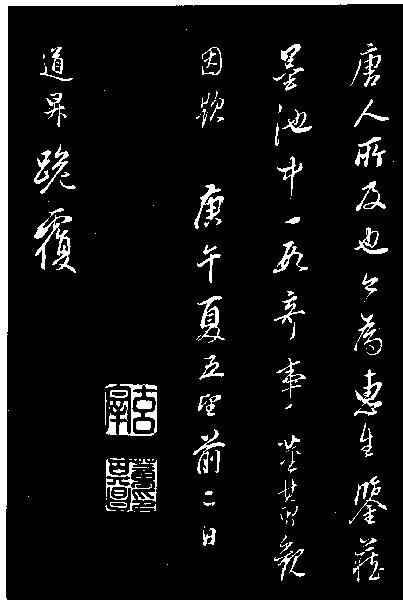 唐人所及也今為惠生鑒藏
墨池中一段奇事董其昌觀
因題 庚午夏五望前二日
道昇跪覆